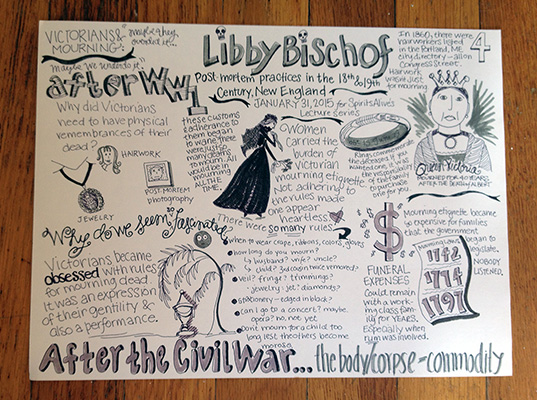 VICTORIANS &
MOURNING:
"maybe they
overdid it...
Maybe we underdo it."
Libby Bischof
Post-mortem practices in the 18th & 19th
Century, New England
JANUARY 31, 2015 for Spirits Alive's
Lecture series
In 1860, there were
hairworkers listed
in the Portland, ME
city directory - all on
Congress Street.
Hairwork
wasn't just
for mourning
4
after WW1
these customs
& adherence to
them began
to wane. there
were just so
many deaths
to mourn. All
would be in
mourning
ALL THE
TIME.
Why did Victorians
need to have physical
remembrances of their
dead?
HAIRWORK
JEWELRY
POST-MORTEM
photography
Women
carried the
burden of
Victorian
mourning etiquette.
Not adhering to
the rules made
one appear
heartless
There were so many rules
Rings commemorate
the deceased. If you
wanted one, it was
the responsibility
of the family
to purchase
one for you.
Queen Victoria
MOURNED FOR 40 YEARS
AFTER THE DEATH of ALBERT
Why do we seem so fascinated?
Victorians became
obsessed with rules
for mourning dead.
It was an expression
of their gentility &
also a performance.
when to wear crape, ribbons, colors, gloves
how long do you mourn?
husband? wife? uncle?
child? 3rd cousin twice removed?
Veil? fringe? trimmings?
jewelry - jet? diamonds?
stationery - edged in black?
can I go to a concert? maybe.
opera? no, not yet
Don't mourn for a child too
long lest the others become
morose
$
FUNERAL
EXPENSES
Could remain
with a work-
ing class fam-
ily for YEARS.
Especially when
rum was involved.
Mourning etiquette became
so expensive for families
that the government
began to
legislate.
NOBODY
LISTENED.
1742
1774
1797
After the Civil War... the body/corpse - commodity